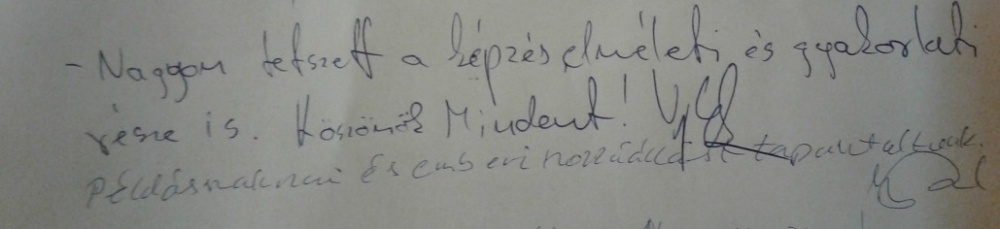 - Nagyon tetszett a képzés elméleti és gyakorlati
része is. Köszönök Mindent!
Példás szakmai és emberi hozzáállást tapasztaltunk.